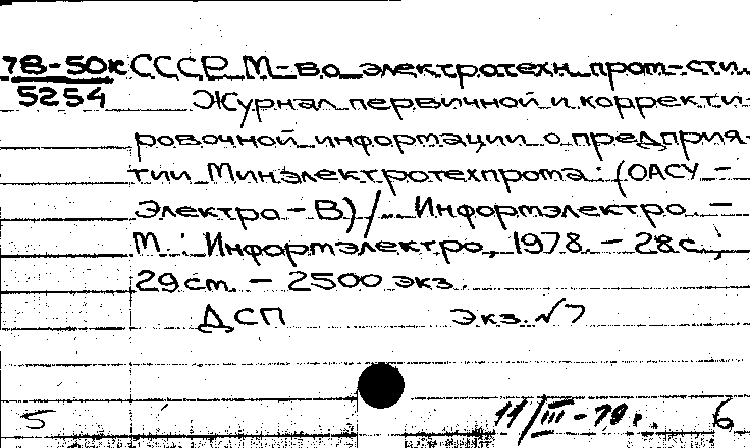 78-50к СССР М-во электротехн. пром-сти.
5254 Журнал первичной и корректи-
ровочной информации о предприя-
тии Минэлектротехпрома: (ОАСУ -
Электро - В) / Информэлектро. -
М.: Информэлектро, 1978. - 28 с.;
29 см. - 2500 экз.
ДСП Экз. № 7
5 11/III-79 г. 6